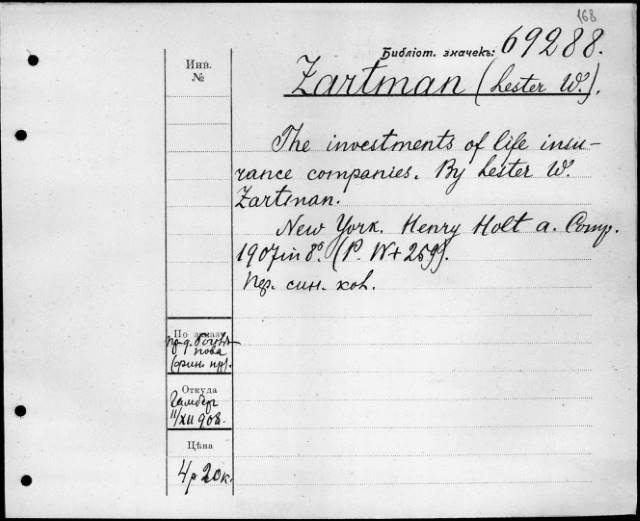 168
Библіот. значекъ: 69288.
Инв.
№
Zartman (Lester W.).
The investments of life insu-
rance companies. By Lester W.
Zartman.
New York. Henry Holt a. Comp.
1907 in 8°. (P. IV + 259).
Пер. син. кол.
По заказу
(фин. пр).
Откуда
11/XII 908.
Цѣна
4р 20к.